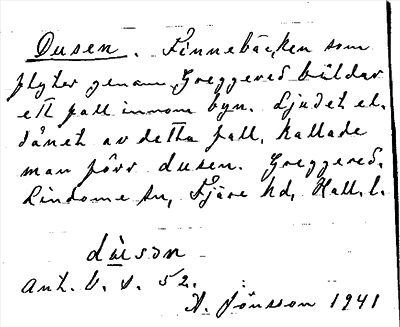 Dusen. Finnebäcken som
flyter genom Greggered bildar
ett fall innom byn. Ljudet el.
dånet av detta fall, kallade
man förr dusen. Greggered,
Lindome sn, Fjäre hd, Hall. l.
dùsən
Ant. b. s. 52.
A. Jönsson 1941